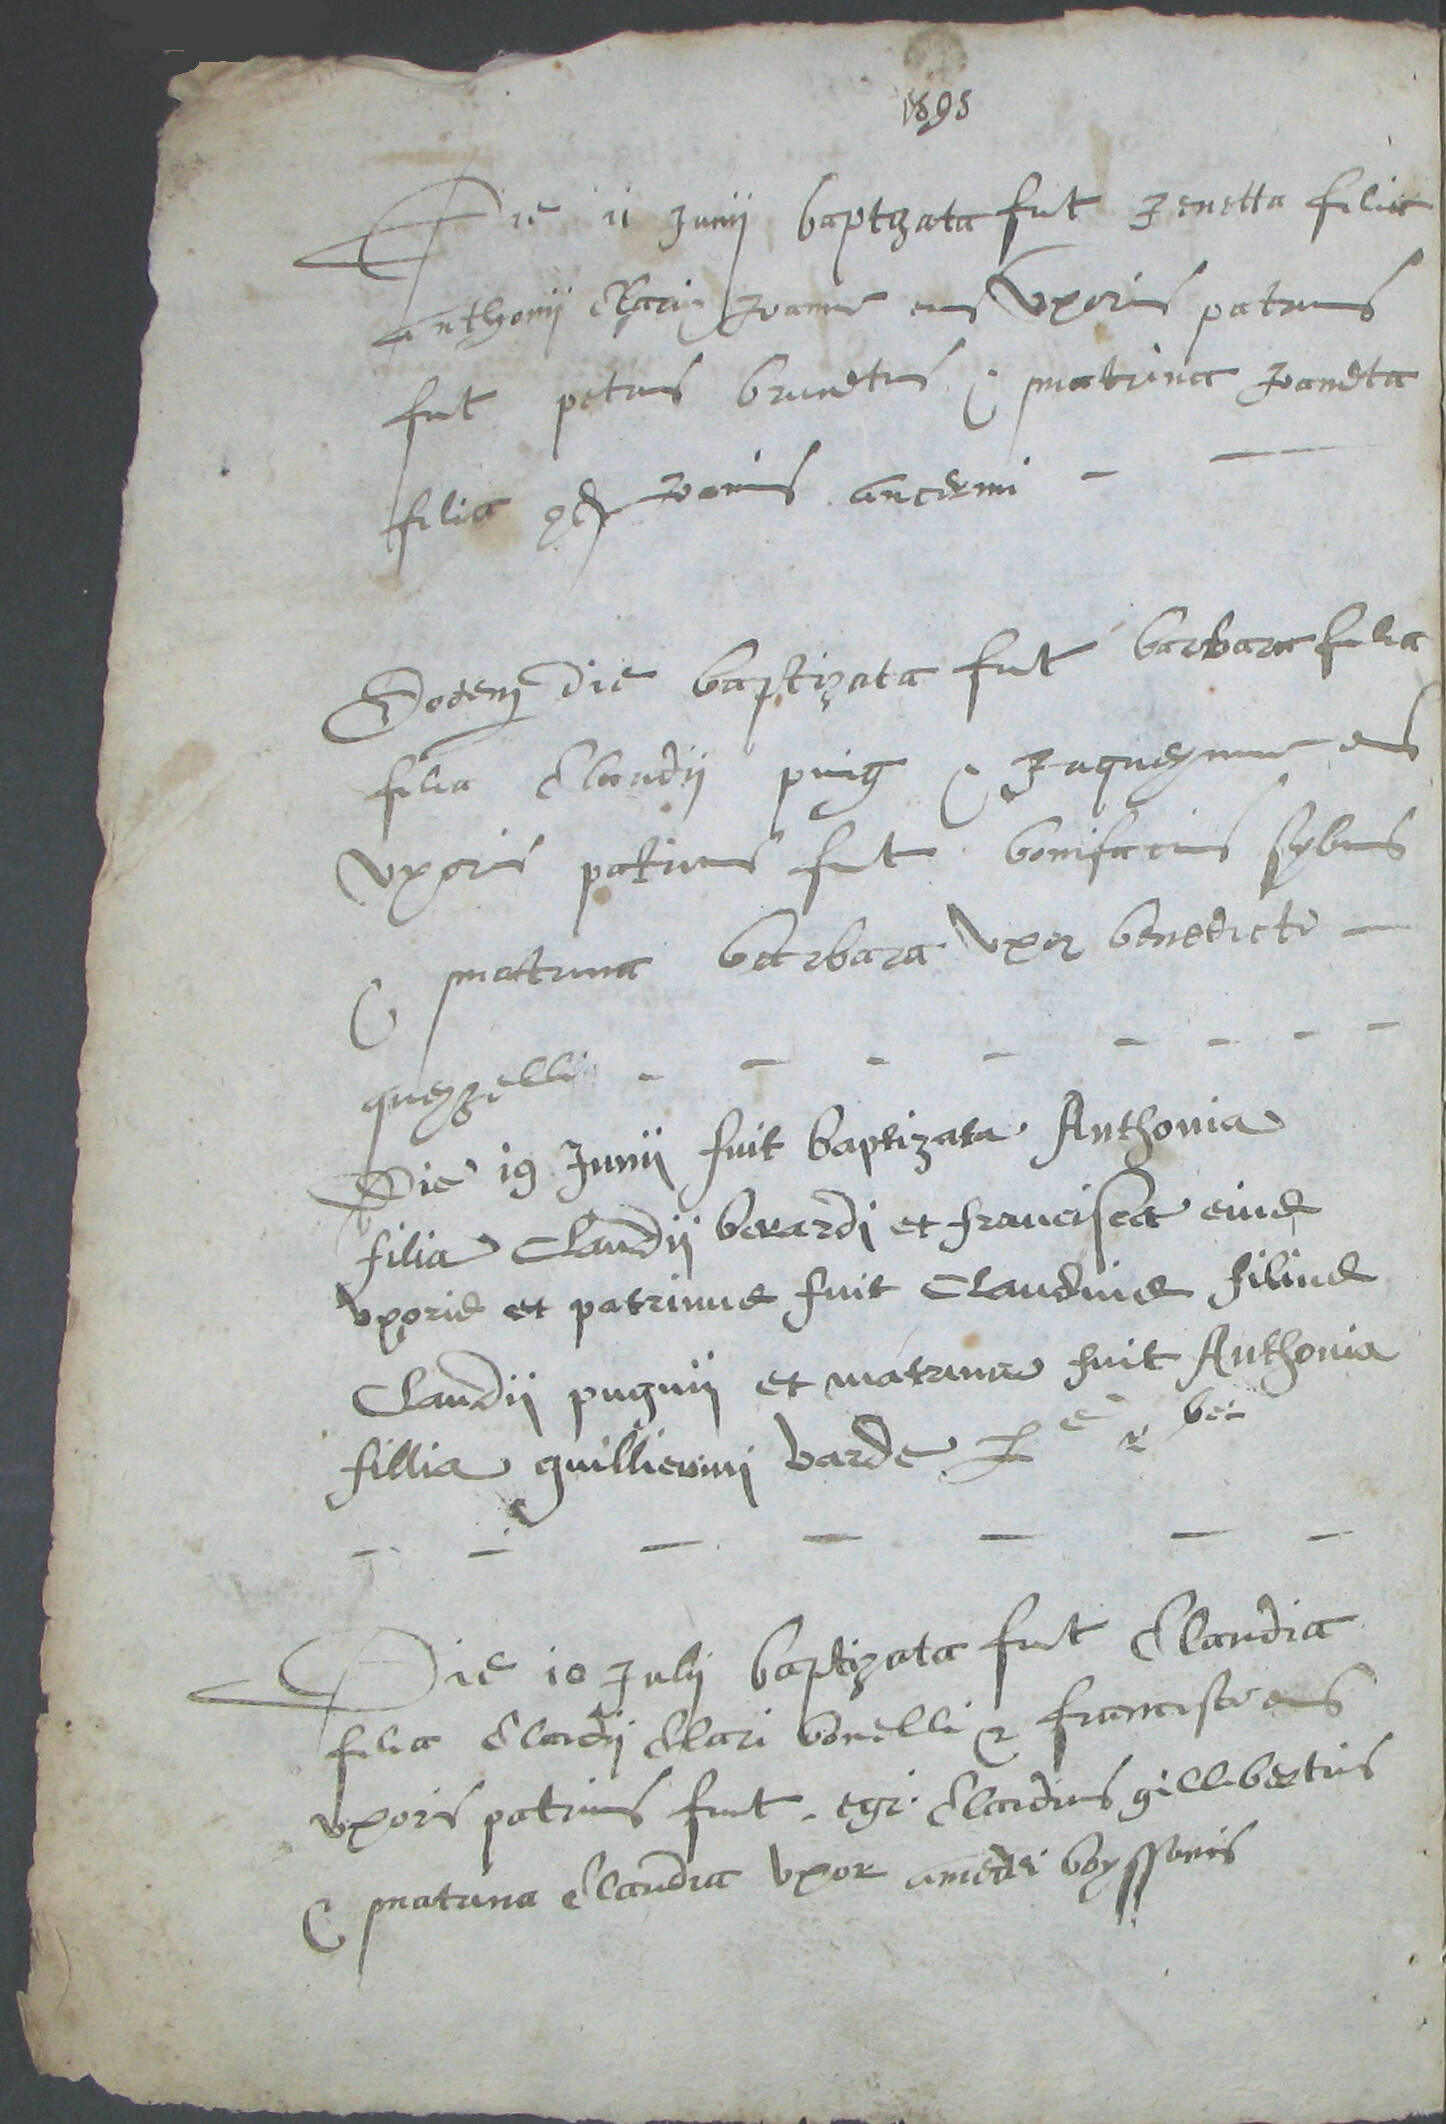 1595
Die 11 Junij baptizata fuit Jenetta filia
anthonij Clari Joanne eius Vxoris patrinus
fuit petrus brunetus & matrina Joaneta
filia qd Joannis ancermi - -
Eodem die baptizata fuit barbara filia
filia Claudij puig & Jaquemme eius
Vxoris patrinus fuit bonifacius sybus
& matrina barbara Vxor benedicti -
- - - - - - - -
Die 19 Junii fuit baptizata Anthonia
filia Claudij berardj et francisca eius
Vxoris et patrinus fuit Claudius filius
Claudij pugnij et matrina fuit Anthonia
fillia guillermj barde
- - - - - - -
Die 10 Julij baptizata fuit Claudia
filia Claudij Clari bonelli & francisce eius
Vxoris patrinus fuit egr. Claudius gillibertus
& matrina Claudia Vxor amedei boyssonis